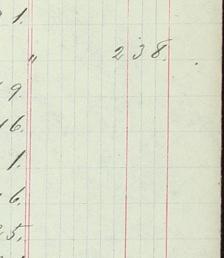 1.
" 238.
9.
16.
1.
6.
5.